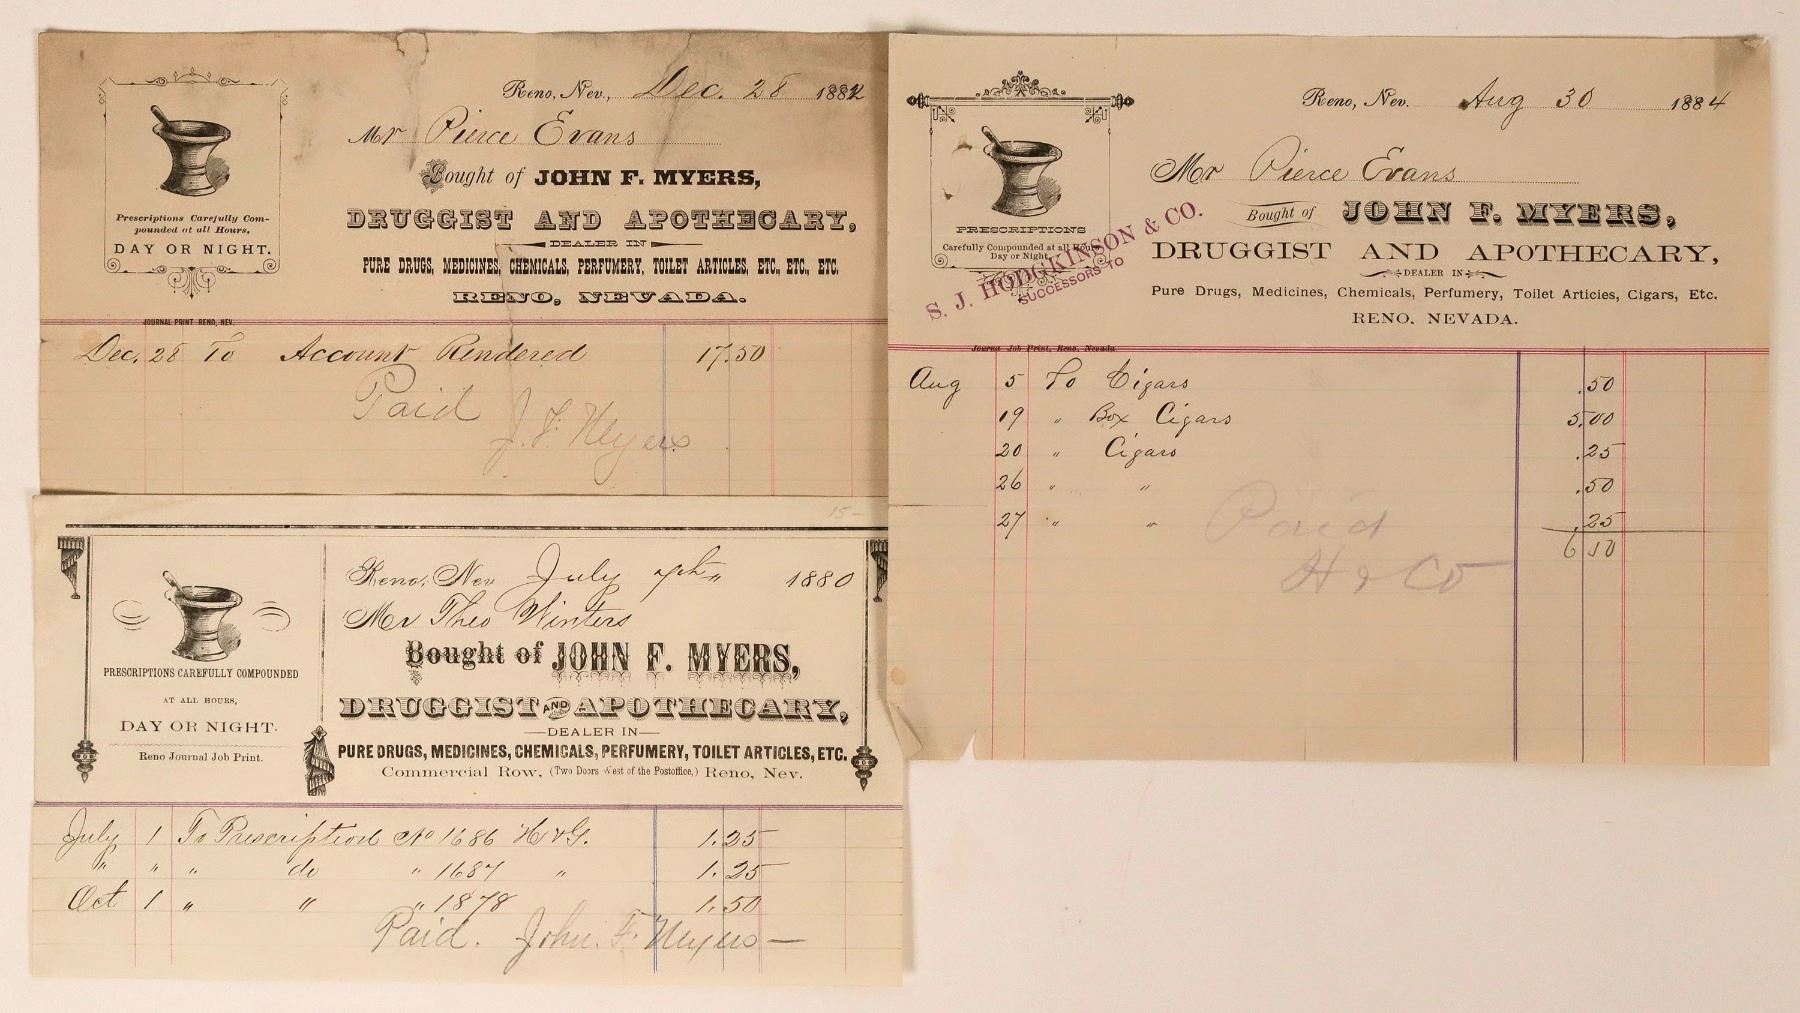 Reno, Nev., Dec. 28 1882
Mr Pierce Evans
Bought of JOHN F. MYERS,
DRUGGIST AND APOTHECARY,
DEALER IN
PURE DRUGS, MEDICINES, CHEMICALS, PERFUMERY, TOILET ARTICLES, ETC., ETC., ETC.
RENO, NEVADA.
Prescriptions Carefully Com-
pounded at all Hours,
DAY OR NIGHT.
JOURNAL PRINT RENO, NEV.
Dec. 28 To Account Rendered 17.50
Paid
J. F. Myers
Reno, Nev. Aug 30 1884
Mr Pierce Evans
Bought of JOHN F. MYERS,
DRUGGIST AND APOTHECARY,
DEALER IN
Pure Drugs, Medicines, Chemicals, Perfumery, Toilet Articies, Cigars, Etc.
RENO, NEVADA.
PRESCRIPTIONS
Carefully Compounded at all Hours
Day or Night.
S. J. HODGKINSON & CO.
SUCCESSORS TO
Journal Job Print, Reno, Nevada
Aug 5 To Cigars .50
19 " Box Cigars 5.00
20 " Cigars .25
26 " " .50
27 " " .25
6 50
Paid
H & Co
15-
Reno, Nev July 1880
Mr Theo Winters
Bought of JOHN F. MYERS,
DRUGGIST AND APOTHECARY,
DEALER IN
PURE DRUGS, MEDICINES, CHEMICALS, PERFUMERY, TOILET ARTICLES, ETC.
Commercial Row, (Two Doors West of the Postoffice,) Reno, Nev.
PRESCRIPTIONS CAREFULLY COMPOUNDED
AT ALL HOURS,
DAY OR NIGHT.
Reno Journal Job Print.
July 1 To Prescription No 1686 H & G. 1.25
" " " do " 1687 " 1.25
Oct 1 " " " 1878 1.50
Paid. John. F. Myers